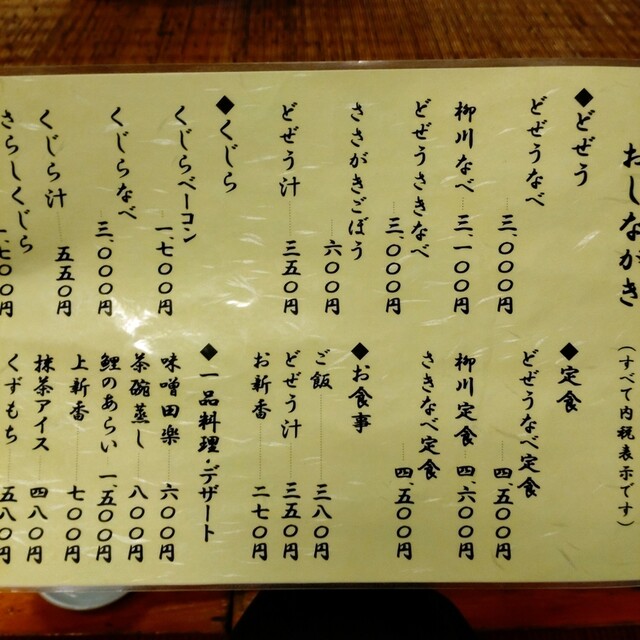 おしながき
(すべて内税表示です)
◆どぜう
どぜうなべ 三、〇〇〇円
柳川なべ 三、一〇〇円
どぜうさきなべ 三、〇〇〇円
ささがきごぼう 六〇〇円
どぜう汁 三五〇円
◆くじら
くじらベーコン 一、七〇〇円
くじらなべ 三、〇〇〇円
くじら汁 五五〇円
さらしくじら 一、七〇〇円
◆定食
どぜうなべ定食 四、五〇〇円
柳川定食 四、六〇〇円
さきなべ定食 四、五〇〇円
◆お食事
ご飯 三八〇円
どぜう汁 三五〇円
お新香 二七〇円
◆一品料理・デザート
味噌田楽 六〇〇円
茶碗蒸し 八〇〇円
鯉のあらい 一、五〇〇円
上新香 七〇〇円
抹茶アイス 四八〇円
くずもち 五八〇円